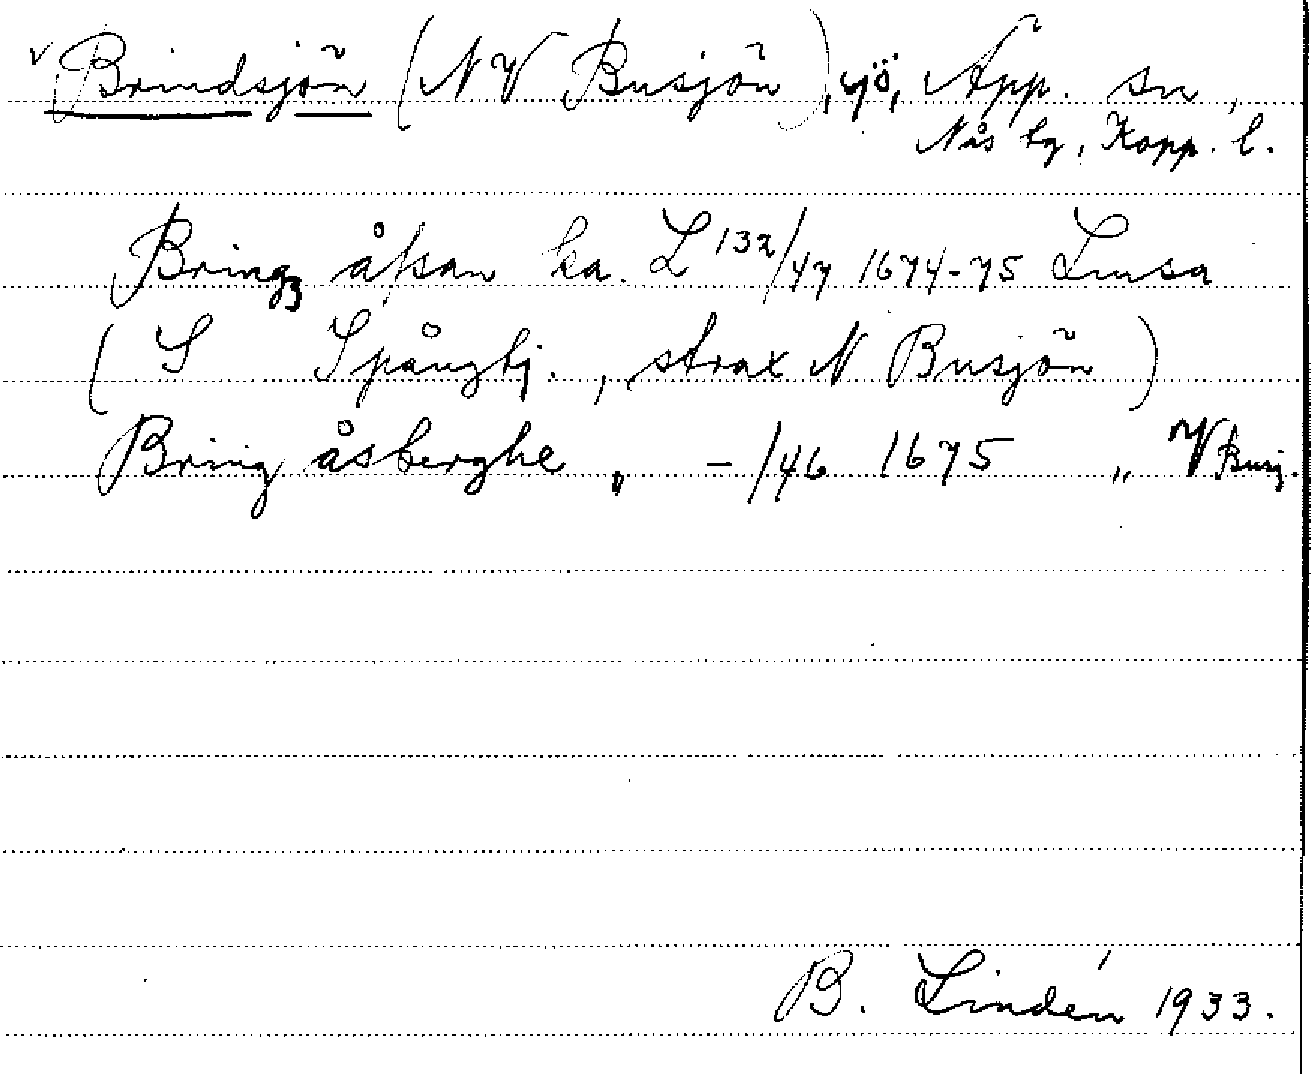 v Brindsjön (NV Busjön), sjö, App. sn,
Nås tg, Kopp. l.
Bring åssan ka. L 132/47 1674-75 Lusa
( S Spångtj., strax N Busjön )
Bring åsberghe „ - /46 1675 „ NV Busj.
B. Lindén 1933.